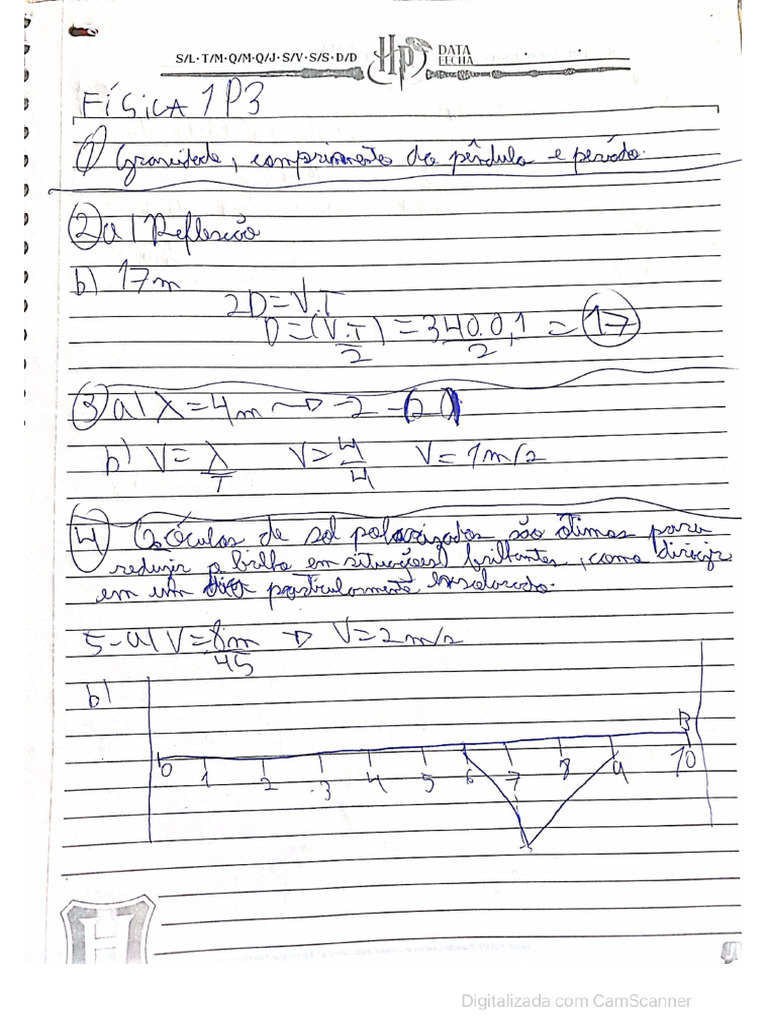 S/L·T/M·Q/M·Q/J·S/V·S/S·D/D
HP
DATA
FECHA
FÍSICA 1P3
1) Gravidade, comprimento do pêndulo e período.
2 a) Reflexão
b) 17m
2D=V.T
D=(V.T)/2 = 340.0,1/2 = 17
3 a) λ=4m → -2-(2)
b) V=λ/T V=4/4 V=1m/s
4 Os óculos de sol polarizados são ótimos para
reduzir o brilho em situações brilhantes, como dirigir
em um dia particularmente ensolarado.
5-a) V=8m/4S → V=2m/s
b)
0 1 2 3 4 5 6 7 8 9 10
B
H
Digitalizada com CamScanner